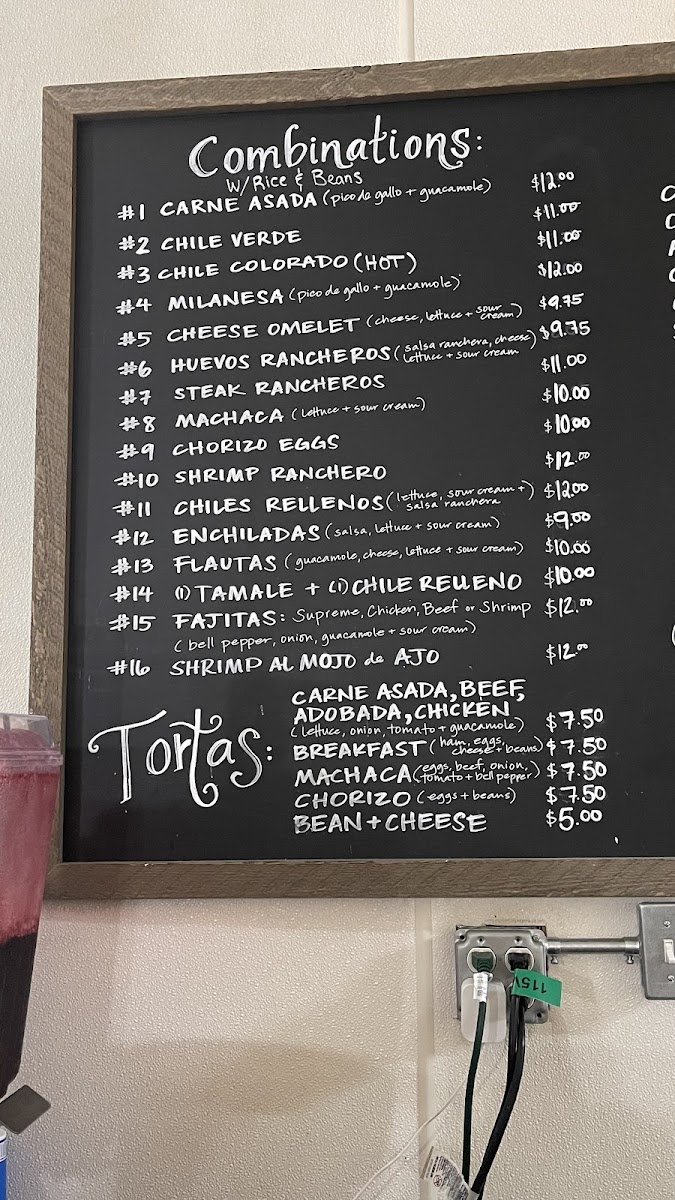 Combinations:
W/Rice & Beans
#1 CARNE ASADA (pico de gallo + guacamole) $12.00
#2 CHILE VERDE $11.00
#3 CHILE COLORADO (HOT) $11.00
#4 MILANESA (pico de gallo + guacamole) $12.00
#5 CHEESE OMELET (cheese, lettuce + sour cream) $9.75
#6 HUEVOS RANCHEROS (salsa ranchera, cheese, lettuce + sour cream $9.75
#7 STEAK RANCHEROS $11.00
#8 MACHACA (lettuce + sour cream) $10.00
#9 CHORIZO EGGS $10.00
#10 SHRIMP RANCHERO $12.00
#11 CHILES RELLENOS (lettuce, sour cream + salsa ranchera) $12.00
#12 ENCHILADAS (salsa, lettuce + sour cream) $9.00
#13 FLAUTAS (guacamole, cheese, lettuce + sour cream) $10.00
#14 (1) TAMALE + (1) CHILE RELLENO $10.00
#15 FAJITAS: Supreme, Chicken, Beef or Shrimp $12.00
(bell pepper, onion, guacamole + sour cream)
#16 SHRIMP AL MOJO de AJO $12.00
Tortas:
CARNE ASADA, BEEF,
ADOBADA, CHICKEN
(lettuce, onion, tomato + guacamole) $7.50
BREAKFAST (ham, eggs, cheese + beans) $7.50
MACHACA (eggs, beef, onion, tomato + bell pepper) $7.50
CHORIZO (eggs + beans) $7.50
BEAN + CHEESE $5.00
115V